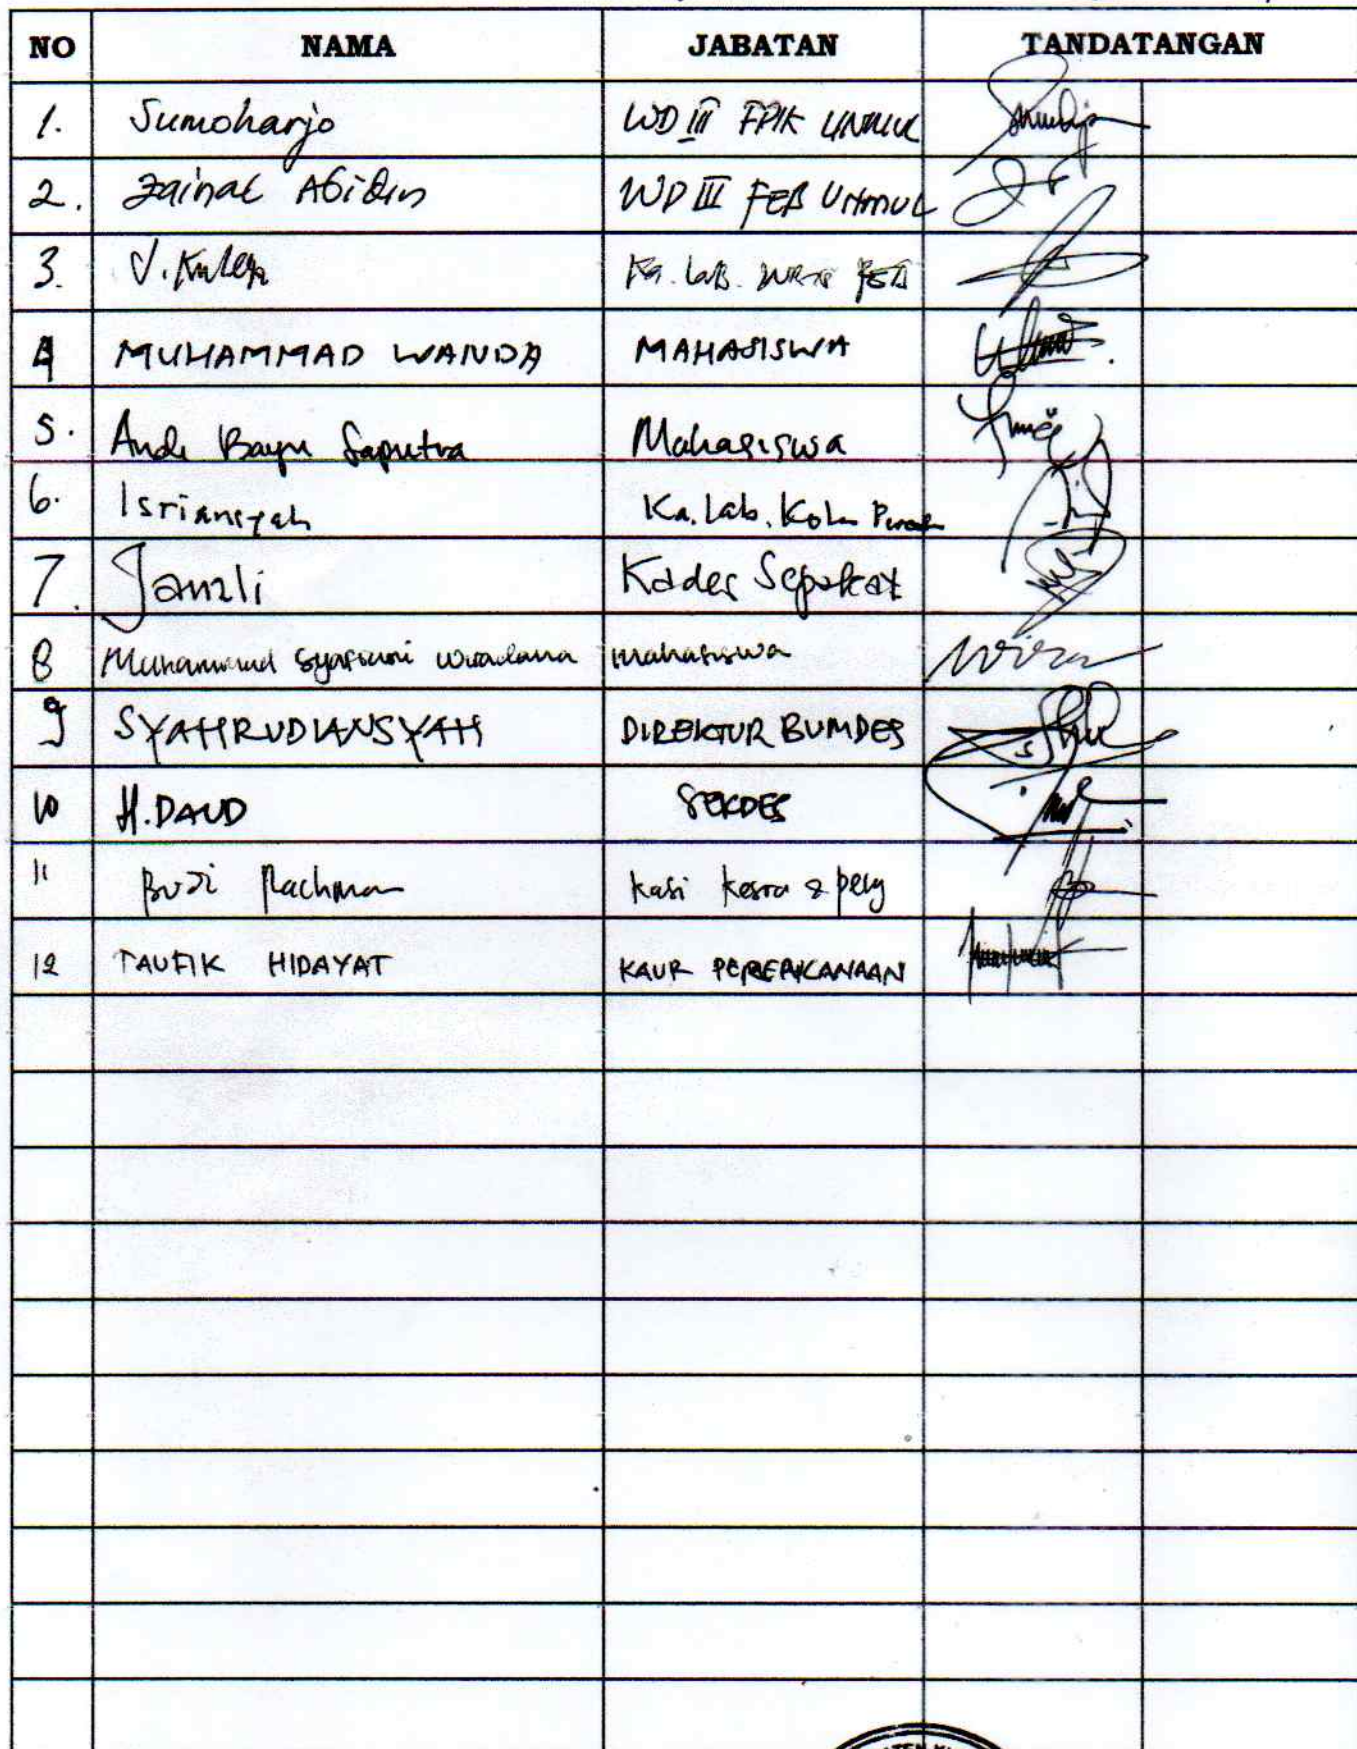 NO NAMA JABATAN TANDATANGAN
1. Sumoharjo WD III FPIK UNMUL
2. Zainal Abidin WD III FEB UNMUL
3. Ka. Lab.
4 MUHAMMAD WANDA MAHASISWA
5. Andi Bayu Saputra Mahasiswa
6. Isriansyah Ka. Lab. Kolam
7. Jamli Kades Sepakat
8 Muhammad Syafiuni Wiradana mahasiswa
9 SYAHRUDIANSYAH DIREKTUR BUMDES
10 H. DAUD SEKDES
11 Budi Rachman Kasi Kesra & pely
12 TAUFIK HIDAYAT KAUR PERENCANAAN